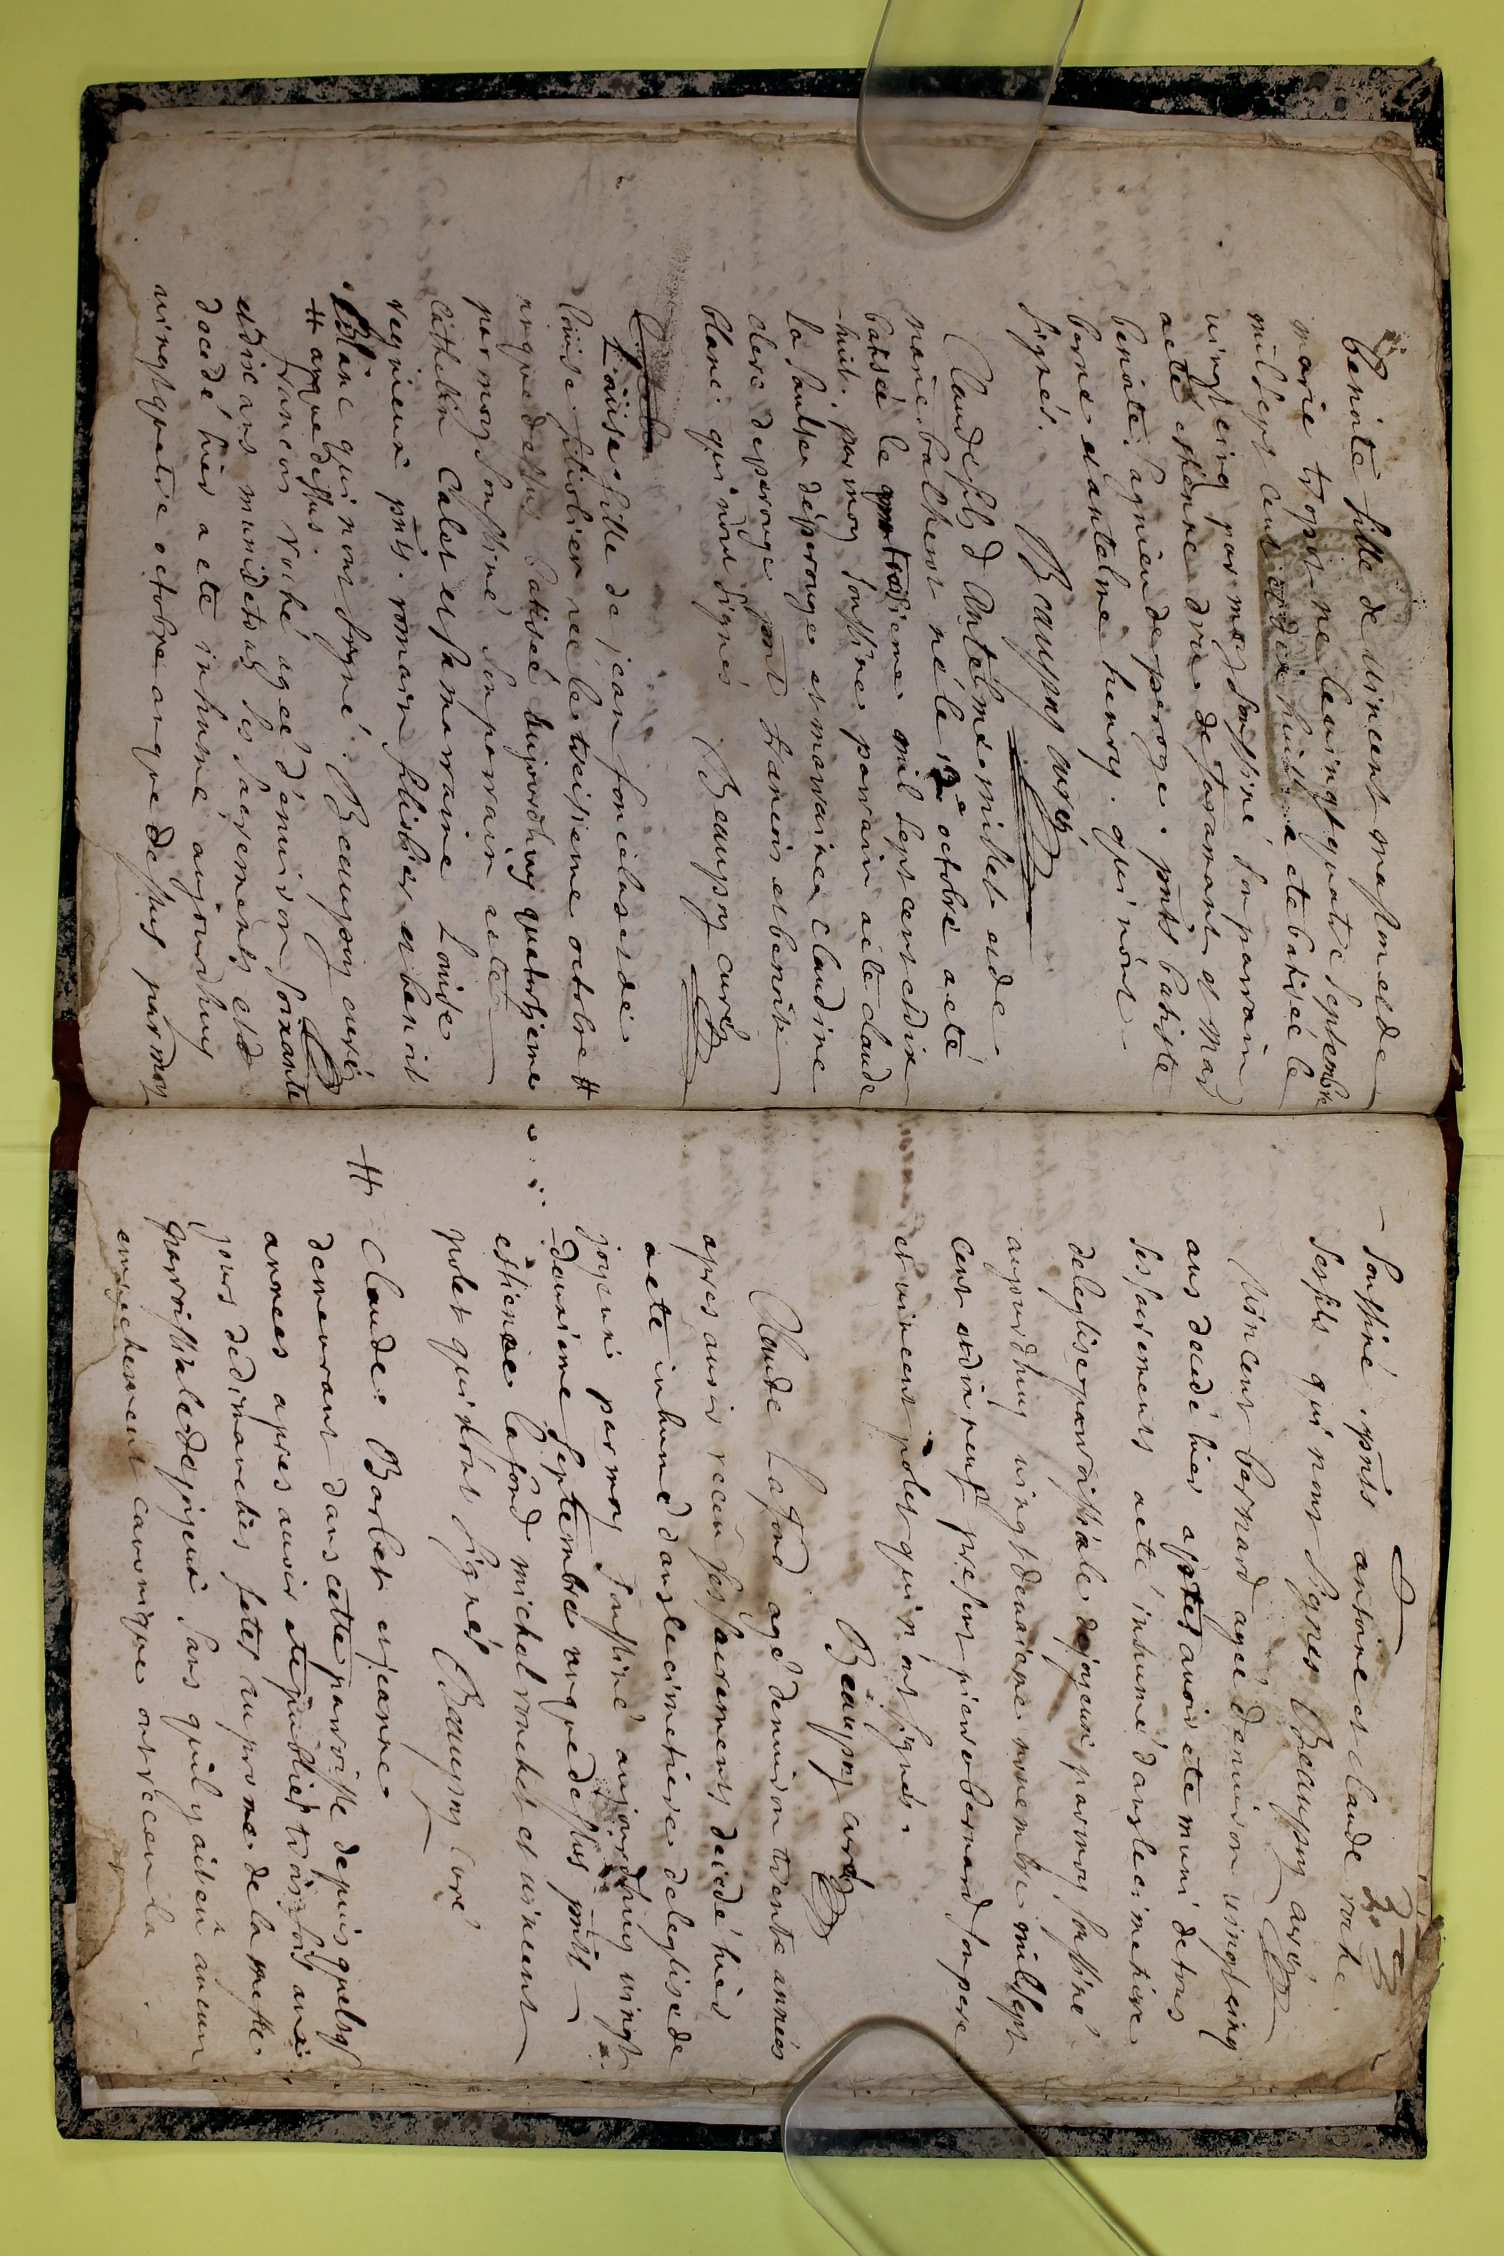 benoite fille de vincent maston et de
marie tripot née le vingt quatre septembre
mil sept cent et dix huit a ete batisée le
vingt cinq par moy soussiné son parain
aeté estienne dru de faramant et mar
benoite agnieu de peroge. pnts batiste
berne et antelme henry. qui nont
signés. Beaupoy curé
Claude fils d'Antelme millet et de
marie balthent né le 12e octobre aeté
batisée le troisieme mil sept cent et dix
huit. par moy soussiné parrain aeté claude
la saulsee de perouge et marraine claudine
clerc de perouge sont francois et benoite
blanc. qui nont signés Beaupoy curé
Louise fille de jean foncielas et de
louise filiolier née le treisieme octobre #
reque dessus batisée aujourdhuy quatorsieme
par moy soussiné son parrain aeté
cathelin Calet et sa marraine Louise
regnieux pnts. romain filiolier et benoit
Blanc qui nont signé. Beaupoy curé
# anque dessus.
francois roché agée d'enviror soixante
et dix ans muni de tous ses sacrements est
decedé hier a eté inhumé aujourdhuy
vingt quatre octobre anque dessus par moy
soussiné. pnts antoine et claude roche
ses fils qui nont signes Beaupoy curé
Vincent bernard agée denviron vingt cinq
ans decedé hier aprés avoir eté muni de tous
ses sacrements aeté inhumé dans le cimetiere
de leglise parroissiale de joyeux par moy soussiné
aujourdhuy vingt deuxieme novembre mil sept
cent et dix neuf present pierre bernard son pere
et vincent polet qui nont signés.
Beaupoy curé
Claude Lafond agé denviron trente années
apres avoir receu ses sacrements decedé hier
aeté inhumé dans le cimetiere de leglise de
joyeux par moy soussiné aujourdhuy vingt
deuxieme septembre anque dessus pnts
estienne lafond michel ronchet et vincent
polet qui nont signés Beaupoy curé
# Claude Barbet et jeanne
demeurant dans cette paroisse depuis quelqs
années apres avoir eté publiés trois fois aux
jours de dimanches fetes au prone de la messe
parroissiale de joyeux sans quil y ait eu aucun
empechement canonique ont receu la